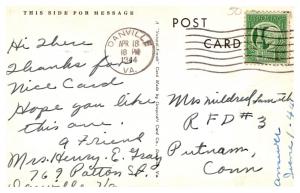 THIS SIDE FOR MESSAGE
POST
CARD
DANVILLE
APR 18
18 PM
1944
VA.
Hi There
Thanks for
Nice Card
Hope you like
this one.
A Friend
Mrs. Henry E. Gray
769 Patton St.
Danville Va
Mrs Mildred Smith
RFD #3
Putnam,
Conn